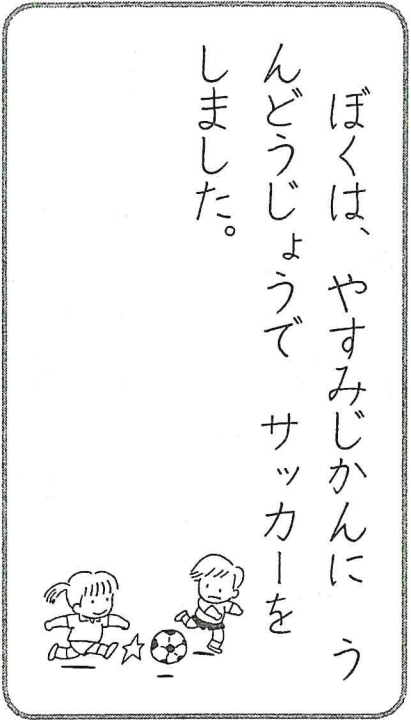 ぼくは、やすみじかんに　う
んどうじょうで　サッカーを
しました。